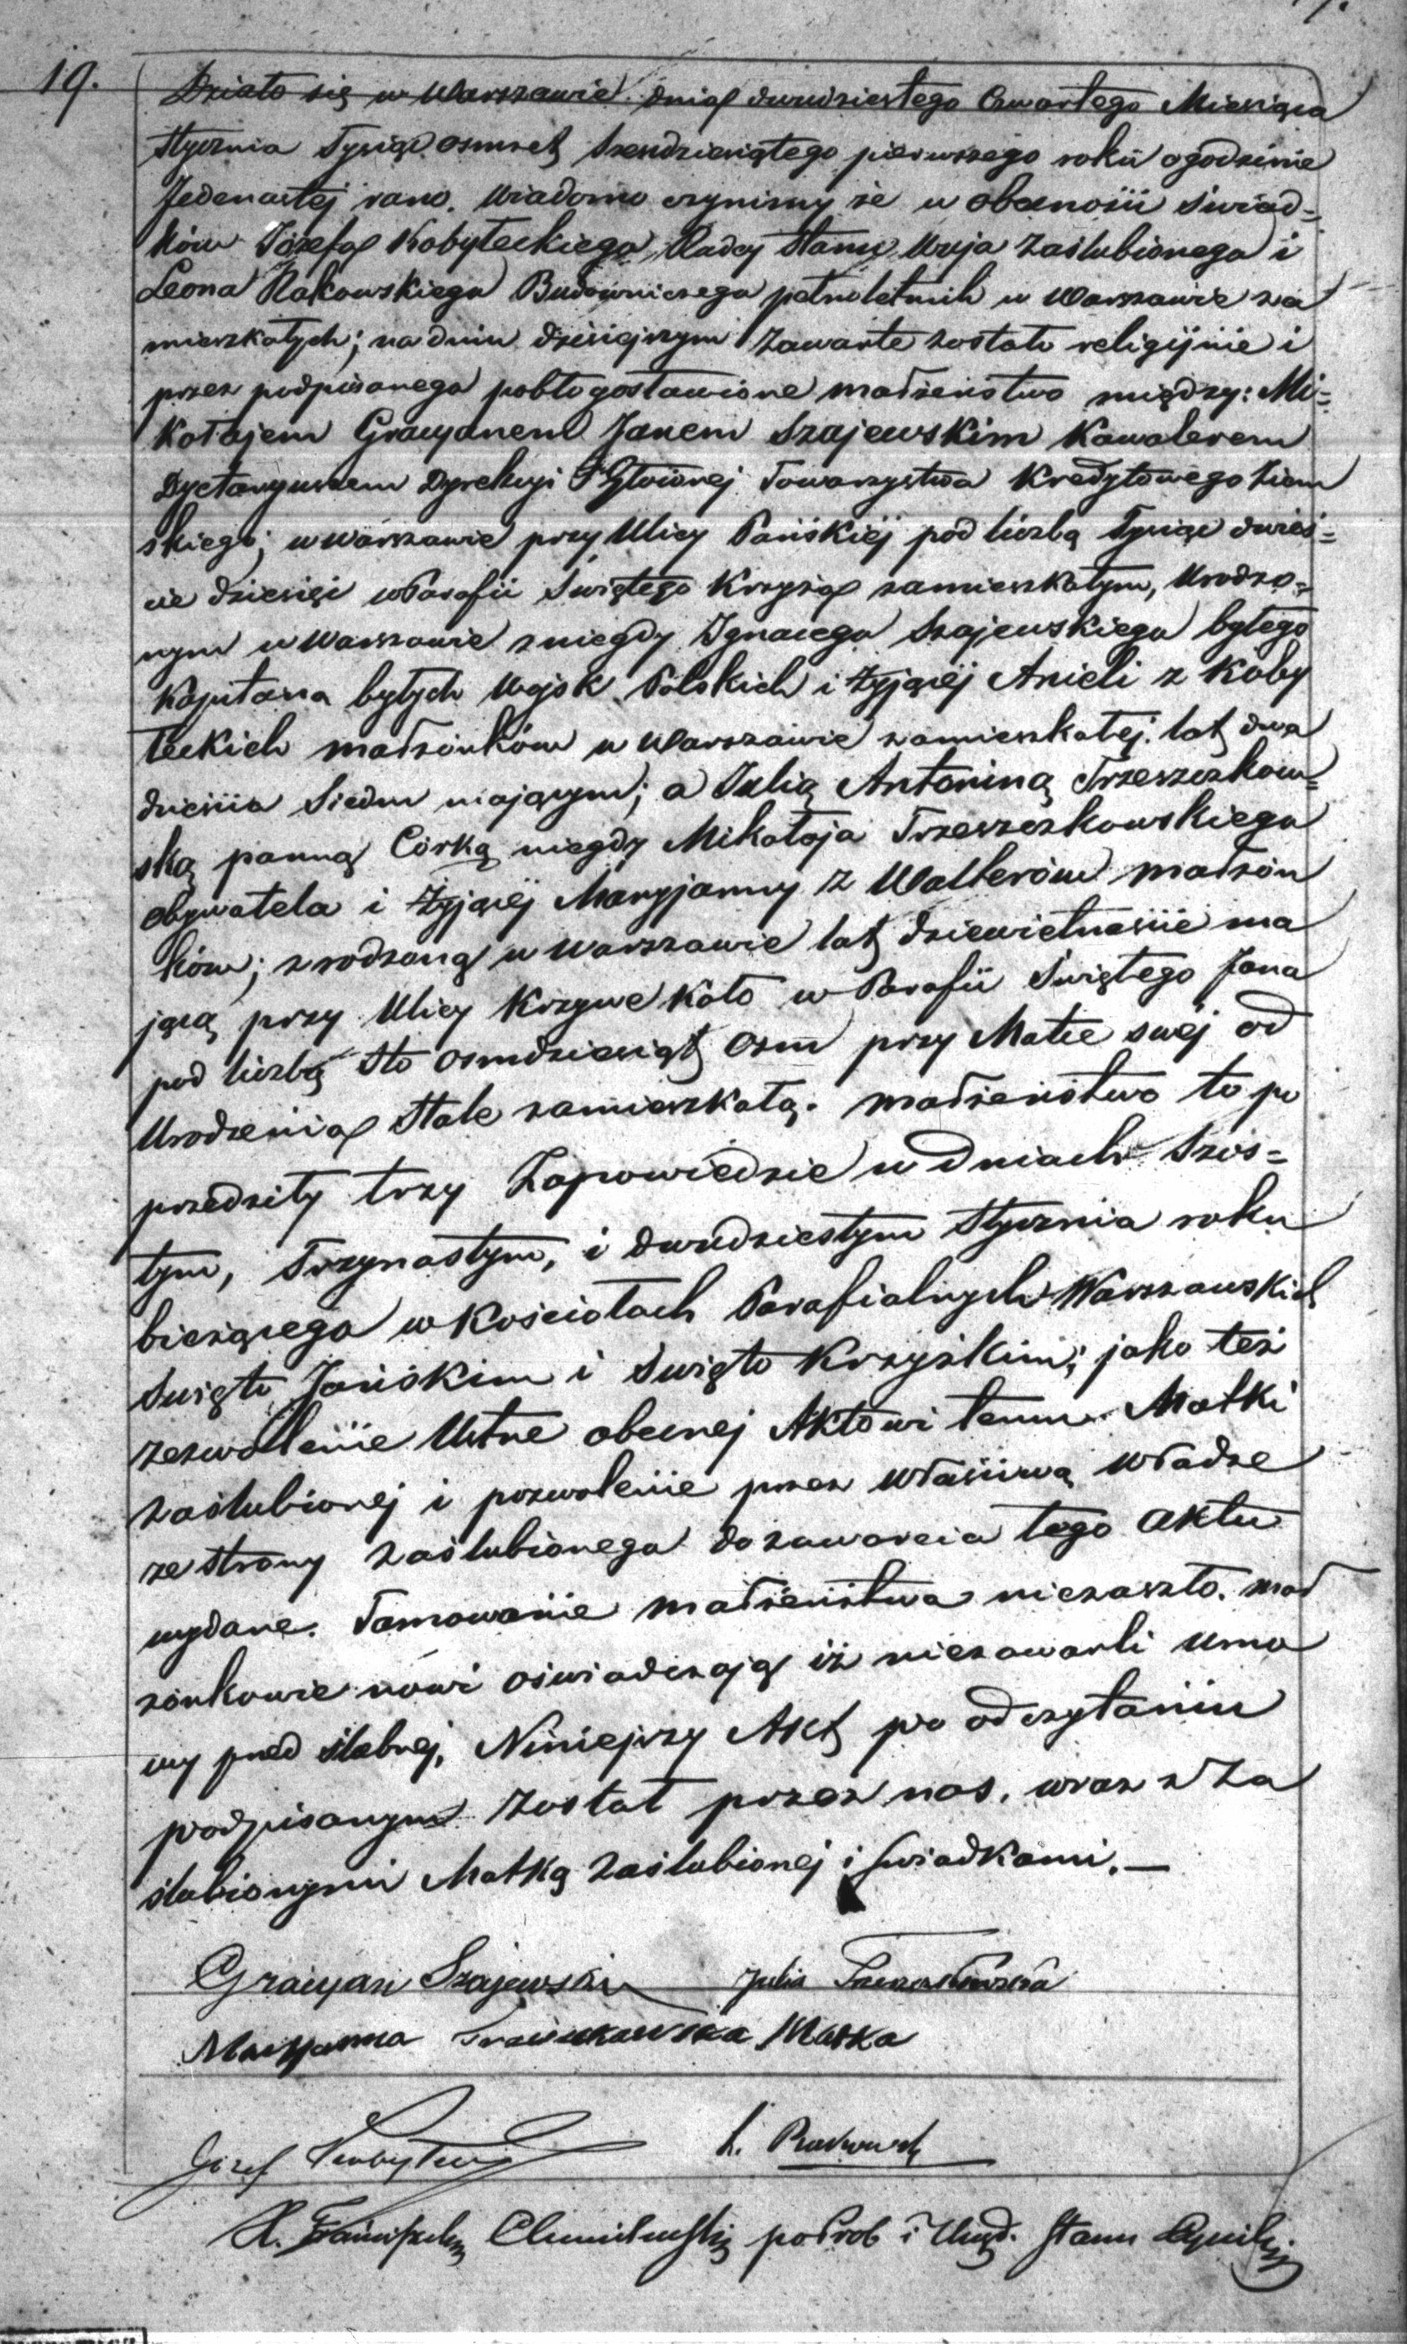 19.
Działo się w Warszawie dnia dwudziestego Czwartego Miesiąca
Stycznia Tysiąc osmset Szesdziesiątego pierwszego roku o godzinie
Jedenastej rano. Wiadomo czynimy że w obecności świad=
ków Józefa Kobyłeckiego Radcy Stanu, Wuja Zaślubionego i
Leona Rakowskiego Budowniczego pełnoletnich w Warszawie za
mieszkałych; na dniu dzisiejszym Zawarte zostało religijnie i
przez podpisanego pobłogosławione małżeństwo między: Mi=
kołajem Gracyanem Janem Szajewskim Kawalerem
Dyetaryuszem Dyrekcyi Głównej Towarzystwa Kredytowego Ziem
skiego; w Warszawie przy Ulicy Pańskiéj pod liczbą Tysiąc dwieś=
cie dziesięć w Parafii Świętego Krzyża zamieszkałym, Urodzo=
nym w Warszawie z niegdy Ignacego Szajewskiego byłego
Kapitana byłych Wojsk Polskich i żyjącéj Anieli z Koby
łeckich małżonków w Warszawie zamieszkałej. lat dwa
dzieścia Siedm mającym; a Julią Antoniną Trzeszczkow=
ską panną Córką niegdy Mikołaja Trzeszczkowskiego
obywatela i żyjącéj Maryjanny z Walterów małżon
ków; zrodzoną w Warszawie lat dziewietnaście ma
jącą przy Ulicy Krzywe Koło w Parafii Świętego Jana
pod liczbą Sto osmdziesiąt Osm przy Matce swéj od
Urodzenia Stale zamieszkałą. małżeństwo to po
przedziły trzy Zapowiedzie w Dniach Szós=
tym, Trzynastym, i dwudziestym Stycznia roku
bieżącego w Kościołach Parafialnych Warszawskich
Święto Jańskim i Święto Krzyskim; jako też
zezwolenie Ustne obecnej Aktowi temu Matki
zaślubionej i pozwolenie przez właściwą władze
ze strony zaślubionego do zawarcia tego aktu
wydane. Tamowanie małżeństwa niezaszło. mał
żonkowie nowi oświadczają iż niezawarli umo
wy przed ślubnej, Niniejszy Akt po odczytaniu
podpisanym został przez nas, wraz z Za
ślubionymi Matką Zaślubionej i świadkami.—
Gracyan Szajewski Julia Trzeszczkowska
Maryanna Trzeszczkowska Matka
Józef Kobyłecki L. Rakowski
X. Franciszek po Prob i Urzęd. Stanu Cywilnego